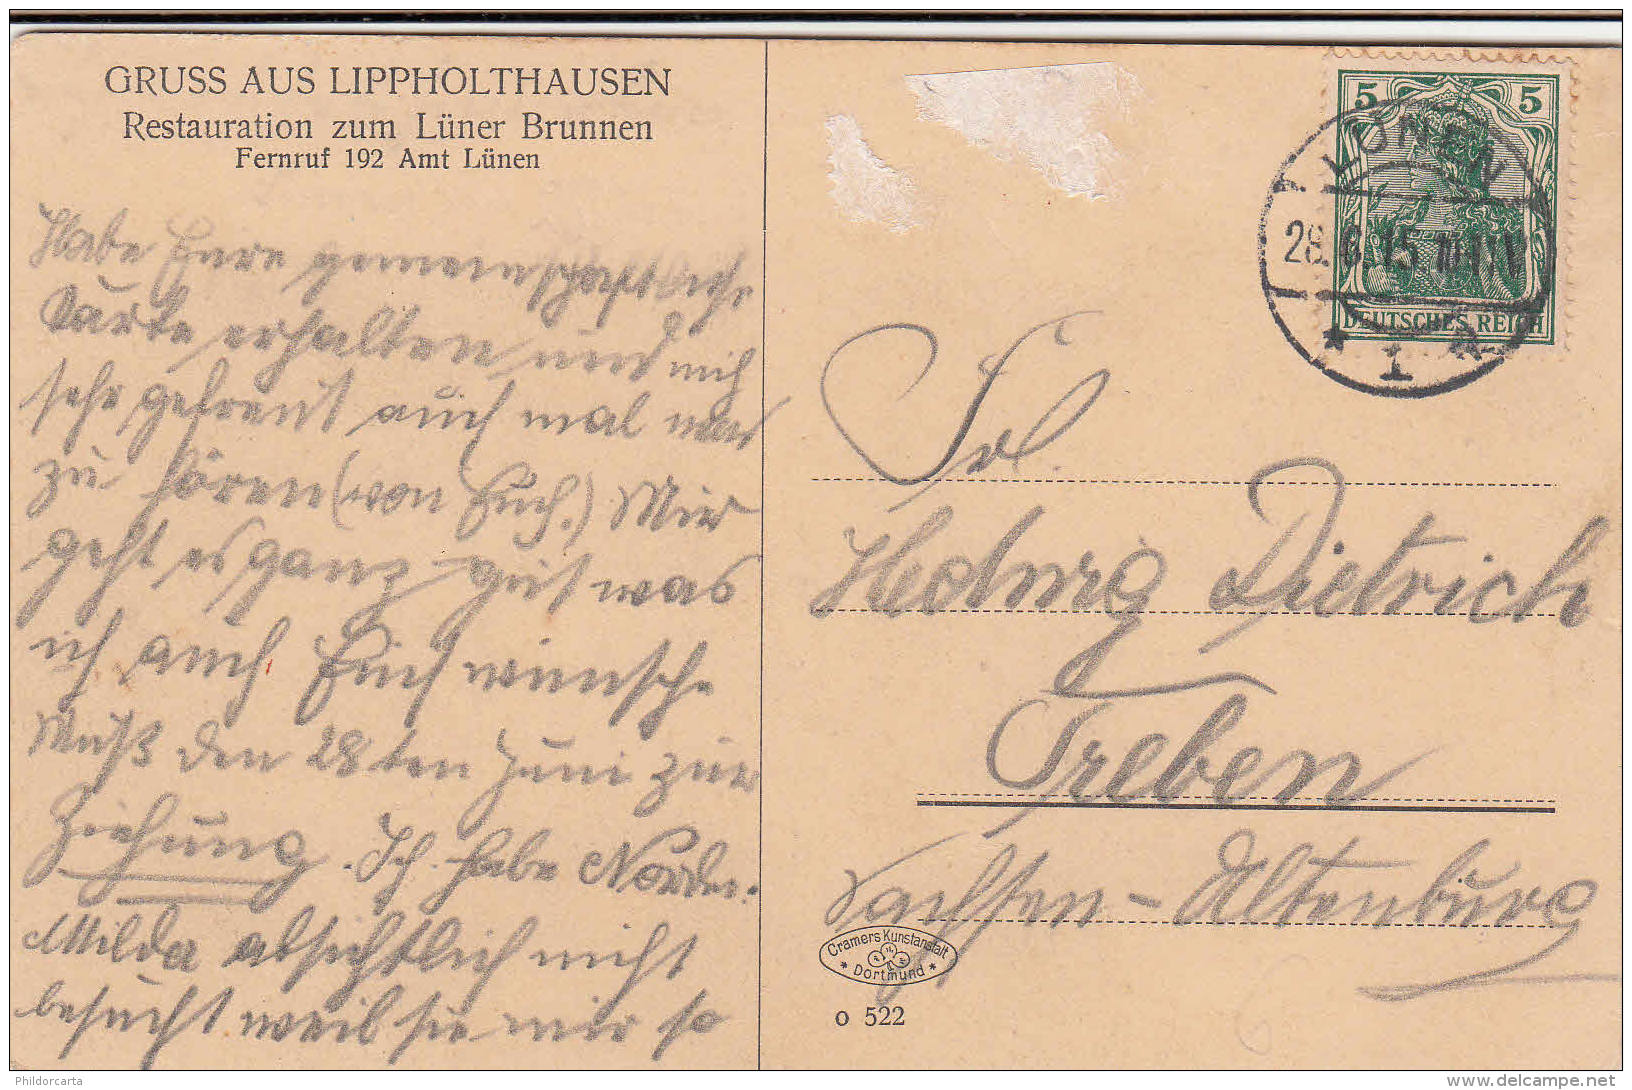 GRUSS AUS LIPPHOLTHAUSEN
Restauration zum Lüner Brunnen
Fernruf 192 Amt Lünen
Habe Eure gemeinschaftliche
Karte erhalten und mich
sehr gefreut auch mal was
zu hören (von Euch.) Mir
geht es ganz gut was
ich auch Euch wünsche
Muß den 28ten Juni zur
Ziehung. Ich habe
Milda absichtlich nicht
besucht weil sie mir so
5 5
LÜNEN
28. 6. 15 10-11 V
* 1 n
DEUTSCHES REICH
Frl.
Hedwig Dietrich
Treben
Sachsen-Altenburg
Cramers Kunstanstalt
* Dortmund *
o 522
Phildorcarta
www.delcampe.net